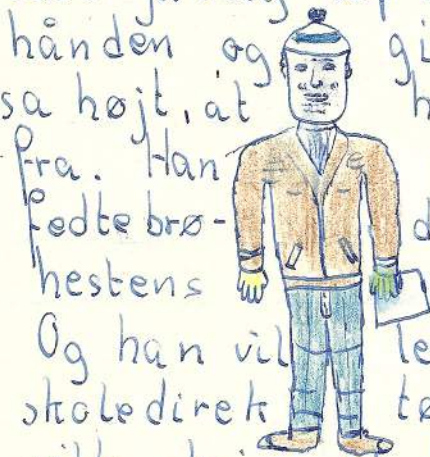 hånden og gi
sa højt, at h
fra. Han
fedtebrø- d
hestens
Og han vil le
skoledirek tø